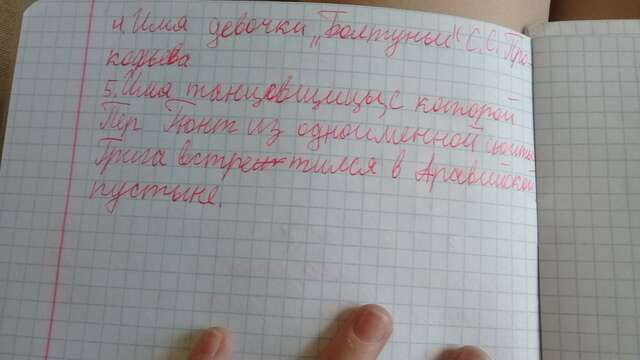 4. Имя девочки „Болтуньи" С.С. Про-
кофьева
5. Имя танцовщицы, с которой
Пер Гюнт из одноименной сюиты
Грига встретился в Аравийской
пустыне.